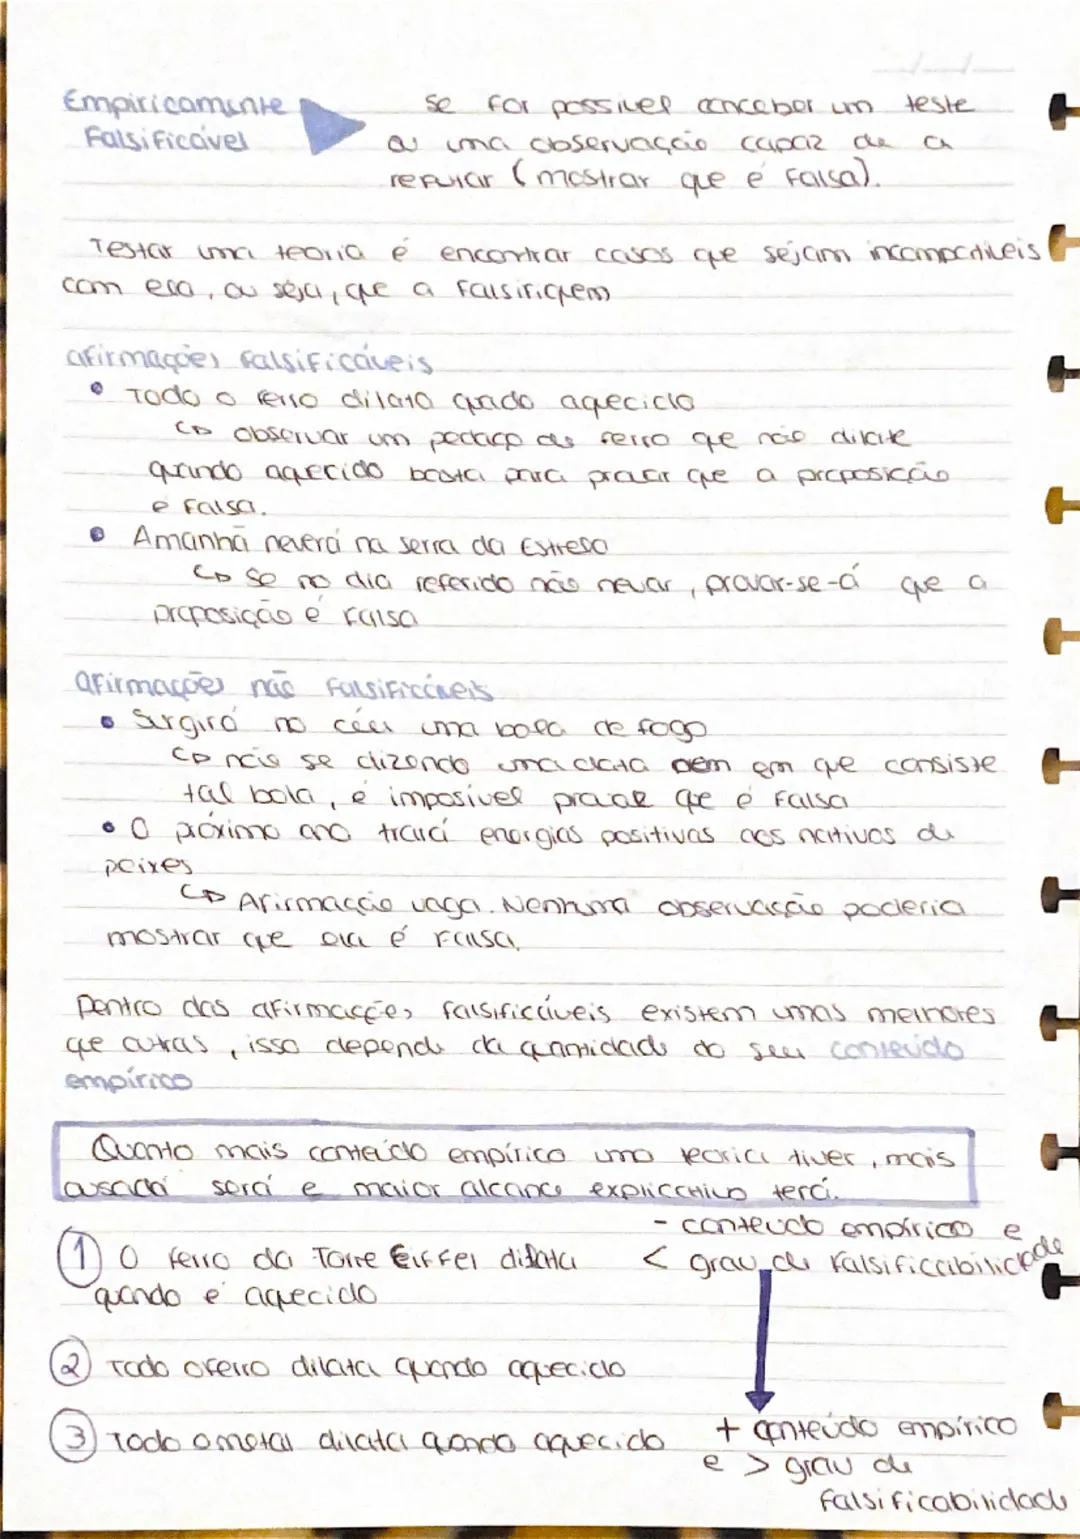 Empiricamente
Falsificável
se for possível conceber um teste
ou uma observação capaz de a
refutar (mostrar que é falsa).
Testar uma teoria é encontrar casos que sejam incompatíveis
com ela, ou seja, que a falsifiquem
afirmações falsificáveis
• Todo o ferro dilata quado aquecido
↳ observar um pedaço de ferro que não dilate
quando aquecido basta para provar que a proposição
é falsa.
• Amanhã neverá na serra da Estrela
↳ se no dia referido não nevar, provar-se-á que a
proposição é falsa
afirmações não falsificáveis
• Surgirá no céu uma bola de fogo
↳ não se dizendo uma data nem em que consiste
tal bola, é imposível provar que é falsa
• O próximo ano trará energias positivas aos nativos de
peixes
↳ Afirmação vaga. Nenhuma observação poderia
mostrar que ela é falsa.
Dentro das afirmações falsificáveis existem umas melhores
que outras, isso depende da quantidade do seu conteúdo
empírico
Quanto mais conteúdo empírico uma teoria tiver, mais
ousada será e maior alcance explicativo terá.
- conteudo empírico e
< grau de falsificabilidade
1 O ferro da Torre Eiffel dilata
quando é aquecido
2 Todo o ferro dilata quando aquecido
3 Todo o metal dilata quando aquecido
+ conteúdo empírico
e > grau de
falsificabilidade